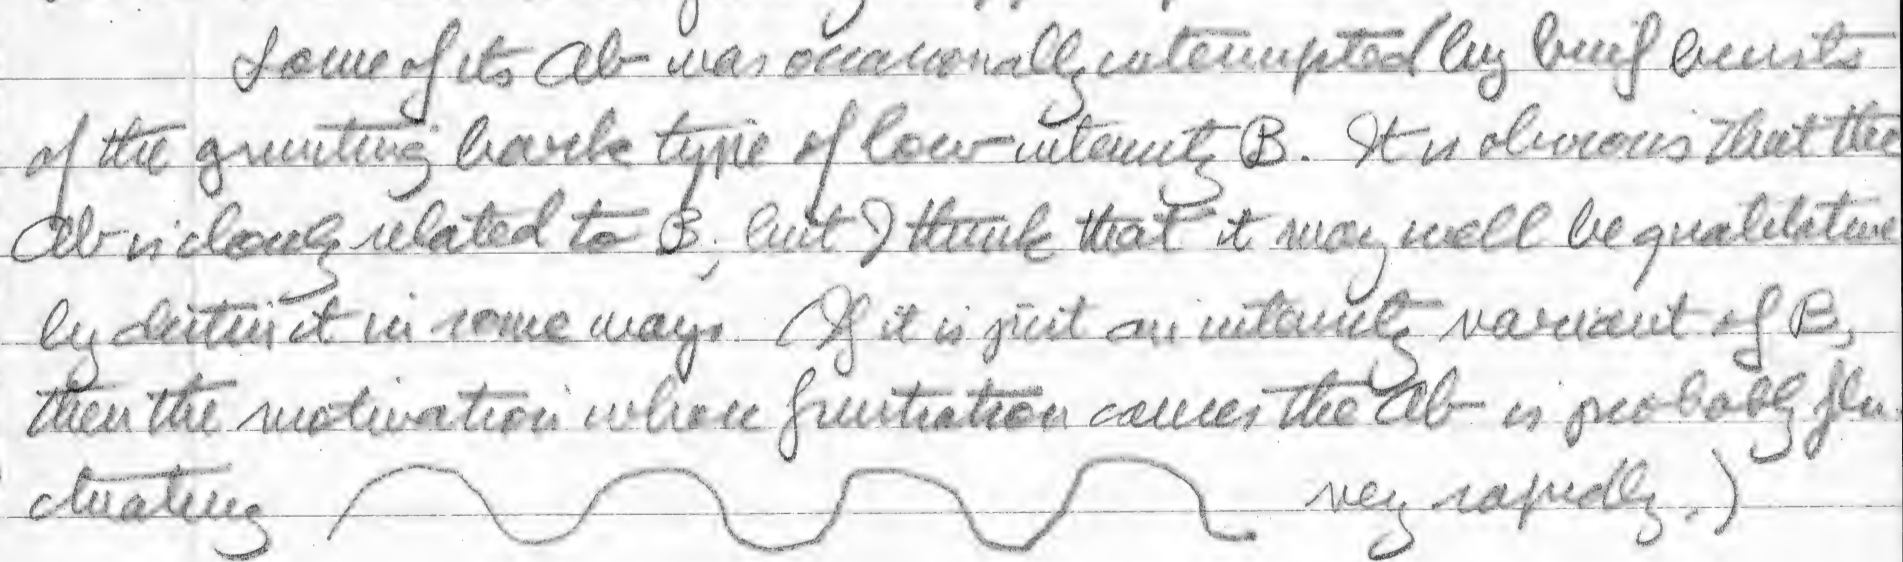 Some of its Ab was occasionally interrupted by brief bursts
of the grunting bark type of low-intensity B. It is obvious that the
Ab is closely related to B, but I think that it may well be qualitative
ly distinct in some ways. (If it is just an intensity variant of B,
then the motivation whose frustration causes the Ab is probably flu
ctuating very rapidly.)